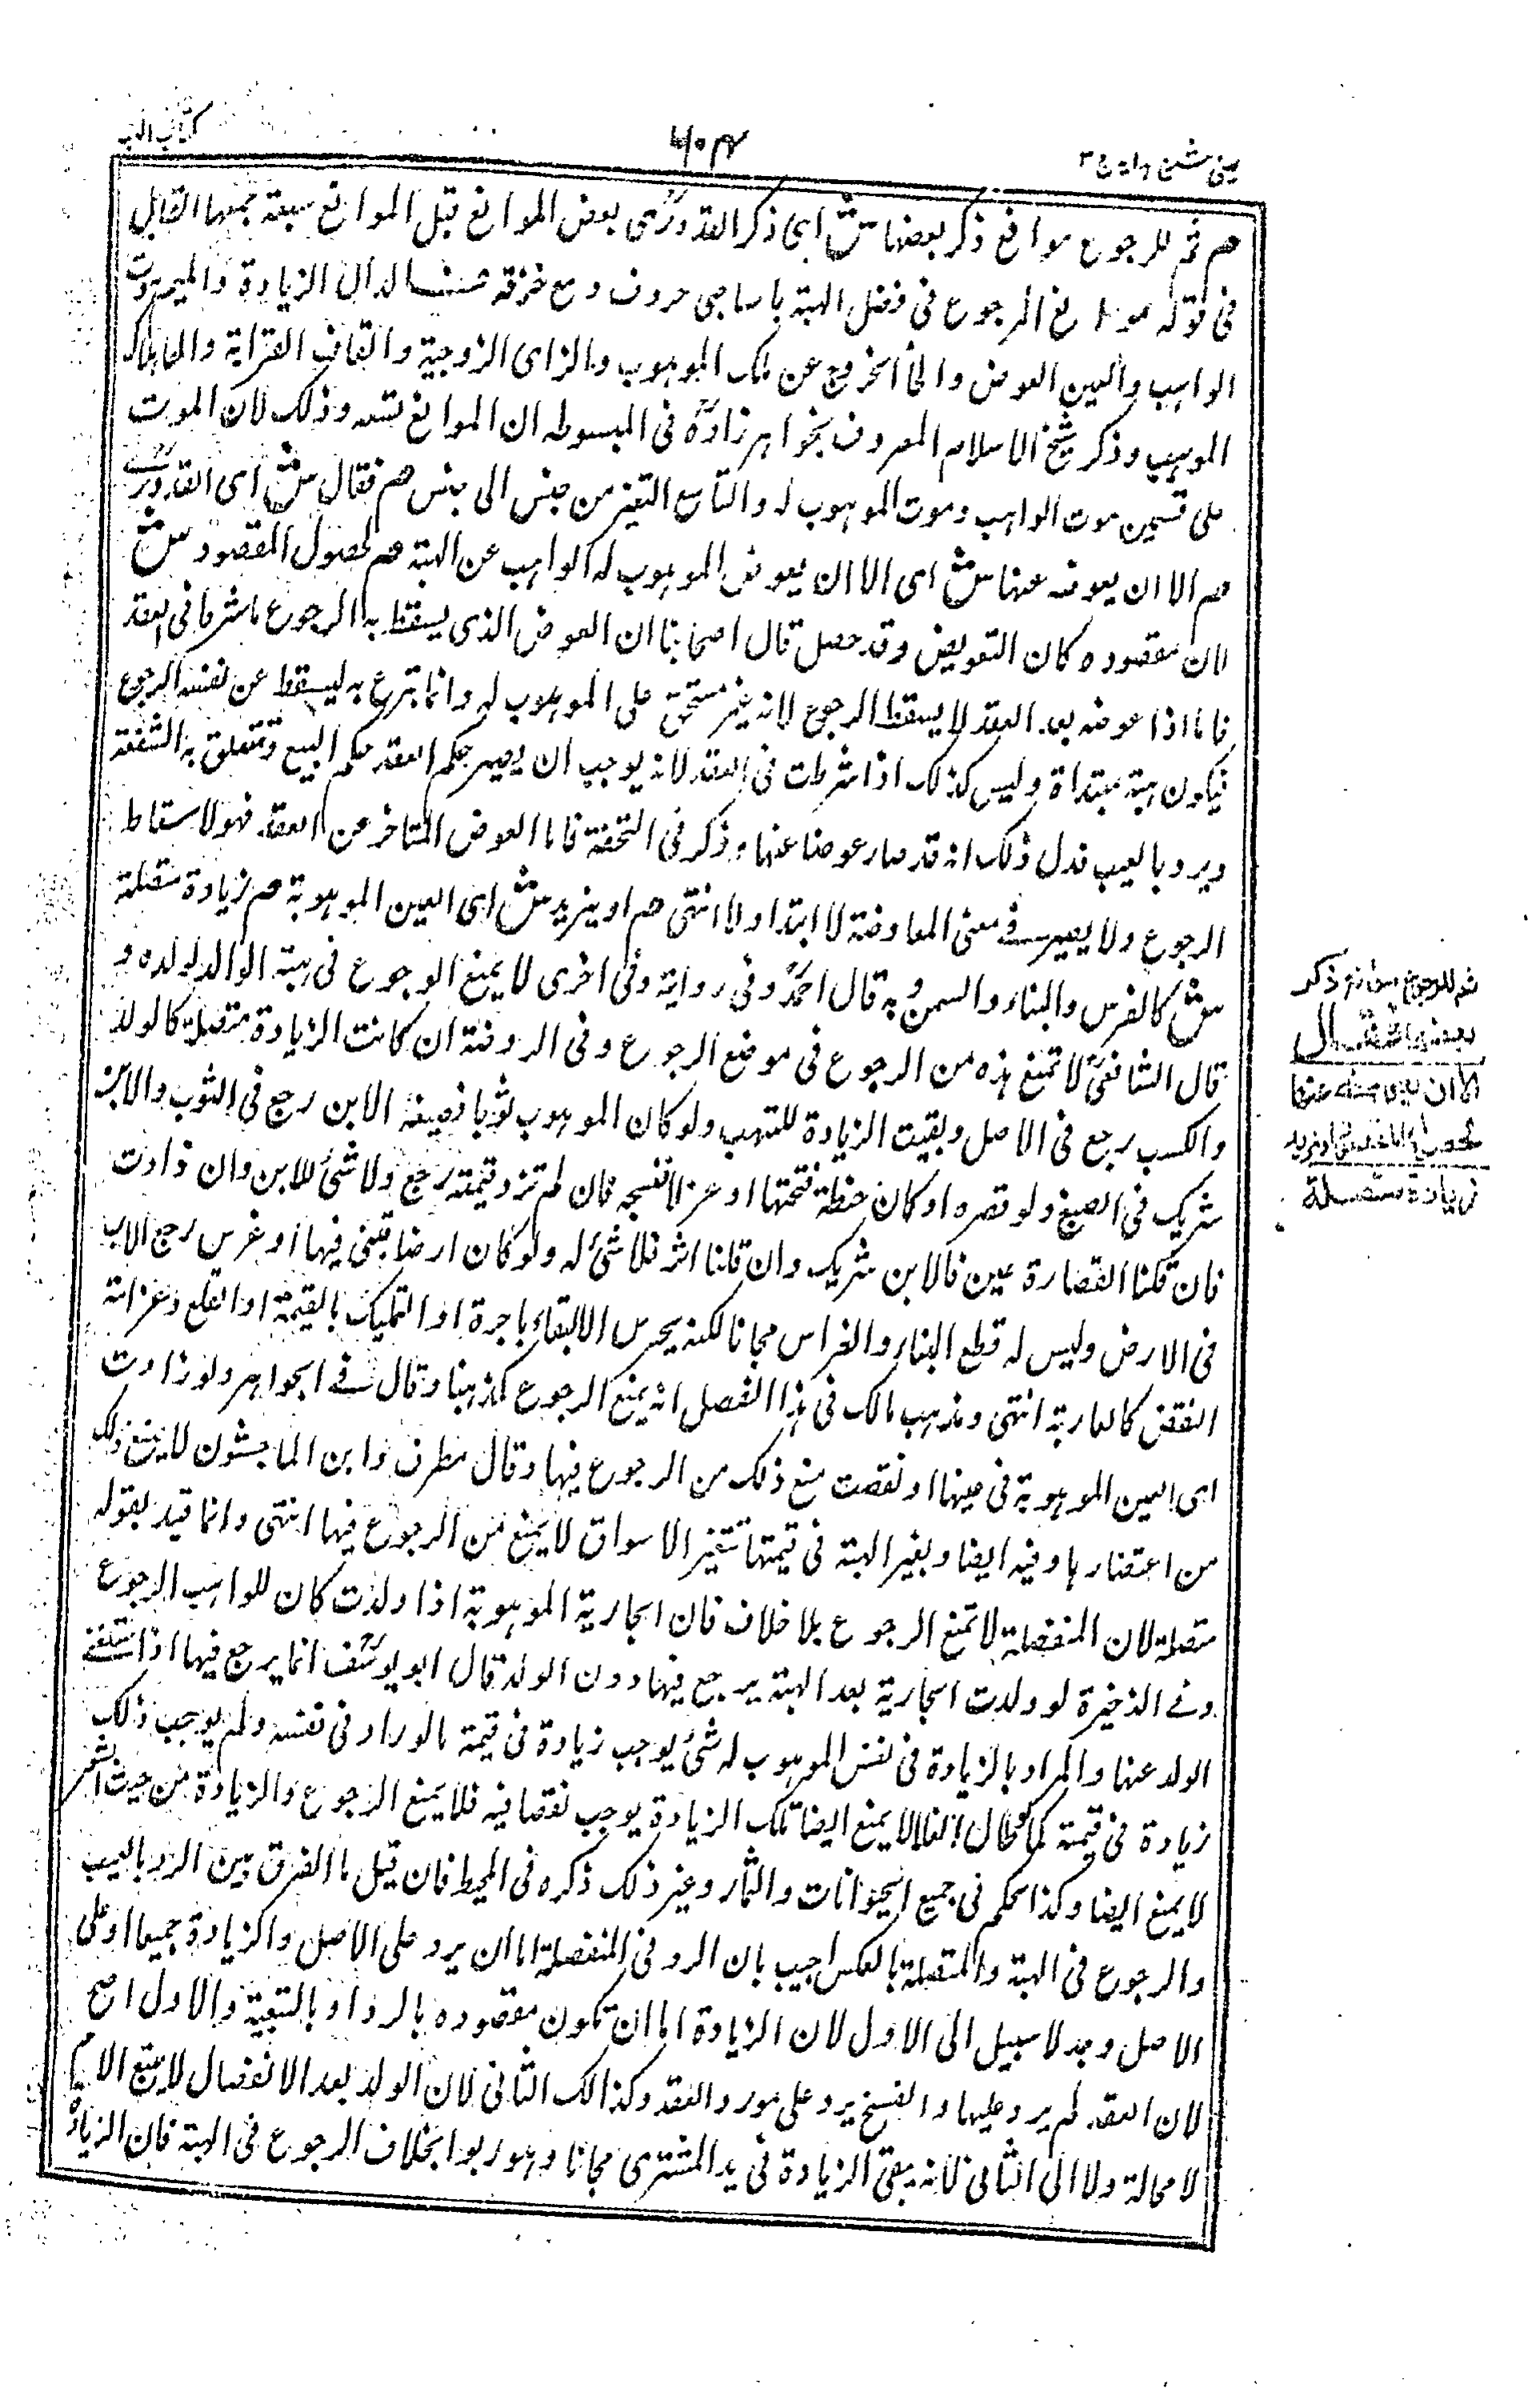 عینی شرح هدایه ج ٣
٦٠٤
کتاب الهبه
م ثم للرجوع موانع ذكر بعضها ش ای ذكر القدوری بعض الموانع قبل الموانع سبعة جمعها القائل
فی قوله موانع الرجوع فی فصل الهبة یا صاحبی حروف دمع خزقه فالدال الزیادة والمیم موت
الواهب والعین العوض والخا الخروج عن ملک الموهوب والزای الزوجیة والقاف القرابة والها هلاک
الموهب وذکر شیخ الاسلام المعروف بخواهر زاده فی المبسوط ان الموانع تسعه وذلک لان الموت
علی قسمین موت الواهب وموت الموهوب له والتاسع التغیر من جنس الی جنس م فقال ش ای القدوری
م الا ان یعوضه عنها ش ای الا ان یعوض الموهوب له الواهب عن الهبة م لحصول المقصود ش
لان مقصوده کان التعویض وقد حصل قال اصحابنا ان العوض الذی یسقط به الرجوع ما شرط فی العقد
فاما اذا عوضه بعد العقد لا یسقط الرجوع لانه غیر مستحق علی الموهوب له وانما تبرع به لیسقط عن نفسه الرجوع
فیکون هبة مبتداة ولیس کذلک اذا شرطت فی العقد لانه یوجب ان یصیر حکم العقد حکم البیع وتتعلق به الشفعة
ویرد بالعیب فدل ذلک انه قد صار عوضا عنها وذکر فی التحفة فاما العوض المتاخر عن العقد فهو لاسقاط
الرجوع ولا یصیر فی معنی المعاوضة لا ابتداء ولا انتهی م او یزید ش ای العین الموهوبة م زیادة متصلة
ش کالغرس والبناء والسمن وبه قال احمد وفی روایة وفی اخری لا یمنع الرجوع فی هبة الوالد لولده و
قال الشافعی لا تمنع هذه من الرجوع فی موضع الرجوع وفی الروضة ان کانت الزیادة متصلة کالولد
والکسب رجع فی الاصل وبقیت الزیادة للمتهب ولو کان الموهوب ثوبا فصبغه الابن رجع فی الثوب والابن
شریک فی الصبغ ولو قصره او کان حنطة فتحتها او غزلا فنسجه فان لم تزد قیمته رجع ولا شئ للابن وان زادت
فان قلنا القصارة عین فالابن شریک وان قلنا اثر فلا شئ له ولو کان ارضا فبنی فیها او غرس رجع الاب
فی الارض ولیس له قطع البناء والغراس مجانا لکنه یحرس الابقاء باجرة او التملیک بالقیمة او القلع وغرامة
النقض کالعاریة انتهی ومذهب مالک فی هذا الفصل انه یمنع الرجوع کمذهبنا وقال فی الجواهر ولو زادت
ای العین الموهوبة فی عینها او نقصت منع ذلک من الرجوع فیها وقال مطرف وابن الماجشون لا یمنع ذلک
من اعتصارها وفیه ایضا وبغیر الهبة فی قیمتها بتغیر الاسواق لا یمنع من الرجوع فیها انتهی وانما قید بقوله
متصلة لان المنفصلة لا تمنع الرجوع بلا خلاف فان الجاریة الموهوبة اذا ولدت کان للواهب الرجوع
وفی الذخیرة لو ولدت الجاریة بعد الهبة یرجع فیها دون الولد قال ابو یوسف انما یرجع فیها اذا استغنی
الولد عنها والمراد بالزیادة فی نفس الموهوب له شئ یوجب زیادة فی قیمة مالو زاد فی نفسه ولم یوجب ذلک
زیادة فی قیمته کما لو طال الغلام لا یمنع ایضا تلک الزیادة یوجب نقصا فیه فلا یمنع الرجوع والزیادة من حیث السعر
لا یمنع ایضا وکذا الحکم فی جمیع الحیوانات والثمار وغیر ذلک ذکره فی المحیط فان قیل ما الفرق بین الرد بالعیب
والرجوع فی الهبة والمتصلة بالعکس اجیب بان الرد فی المنفصلة اما ان یرد علی الاصل والزیادة جمیعا او علی
الاصل وحده لا سبیل الی الاول لان الزیادة اما ان تکون مقصوده بالرد او بالتبعیة والاول اصح
لان العقد لم یرد علیها والفسخ یرد علی مورد العقد وکذالک الثانی لان الولد بعد الانفصال لا یتبع الام
لا محالة ولا الی الثانی لانه یبقی الزیادة فی ید المشتری مجانا وهو ربوا بخلاف الرجوع فی الهبة فان الزیادة
ثم للرجوع موانع ذکر
بعضها فقال
الا ان یعوضه عنها
لحصول المقصود او یزید
زیادة متصلة